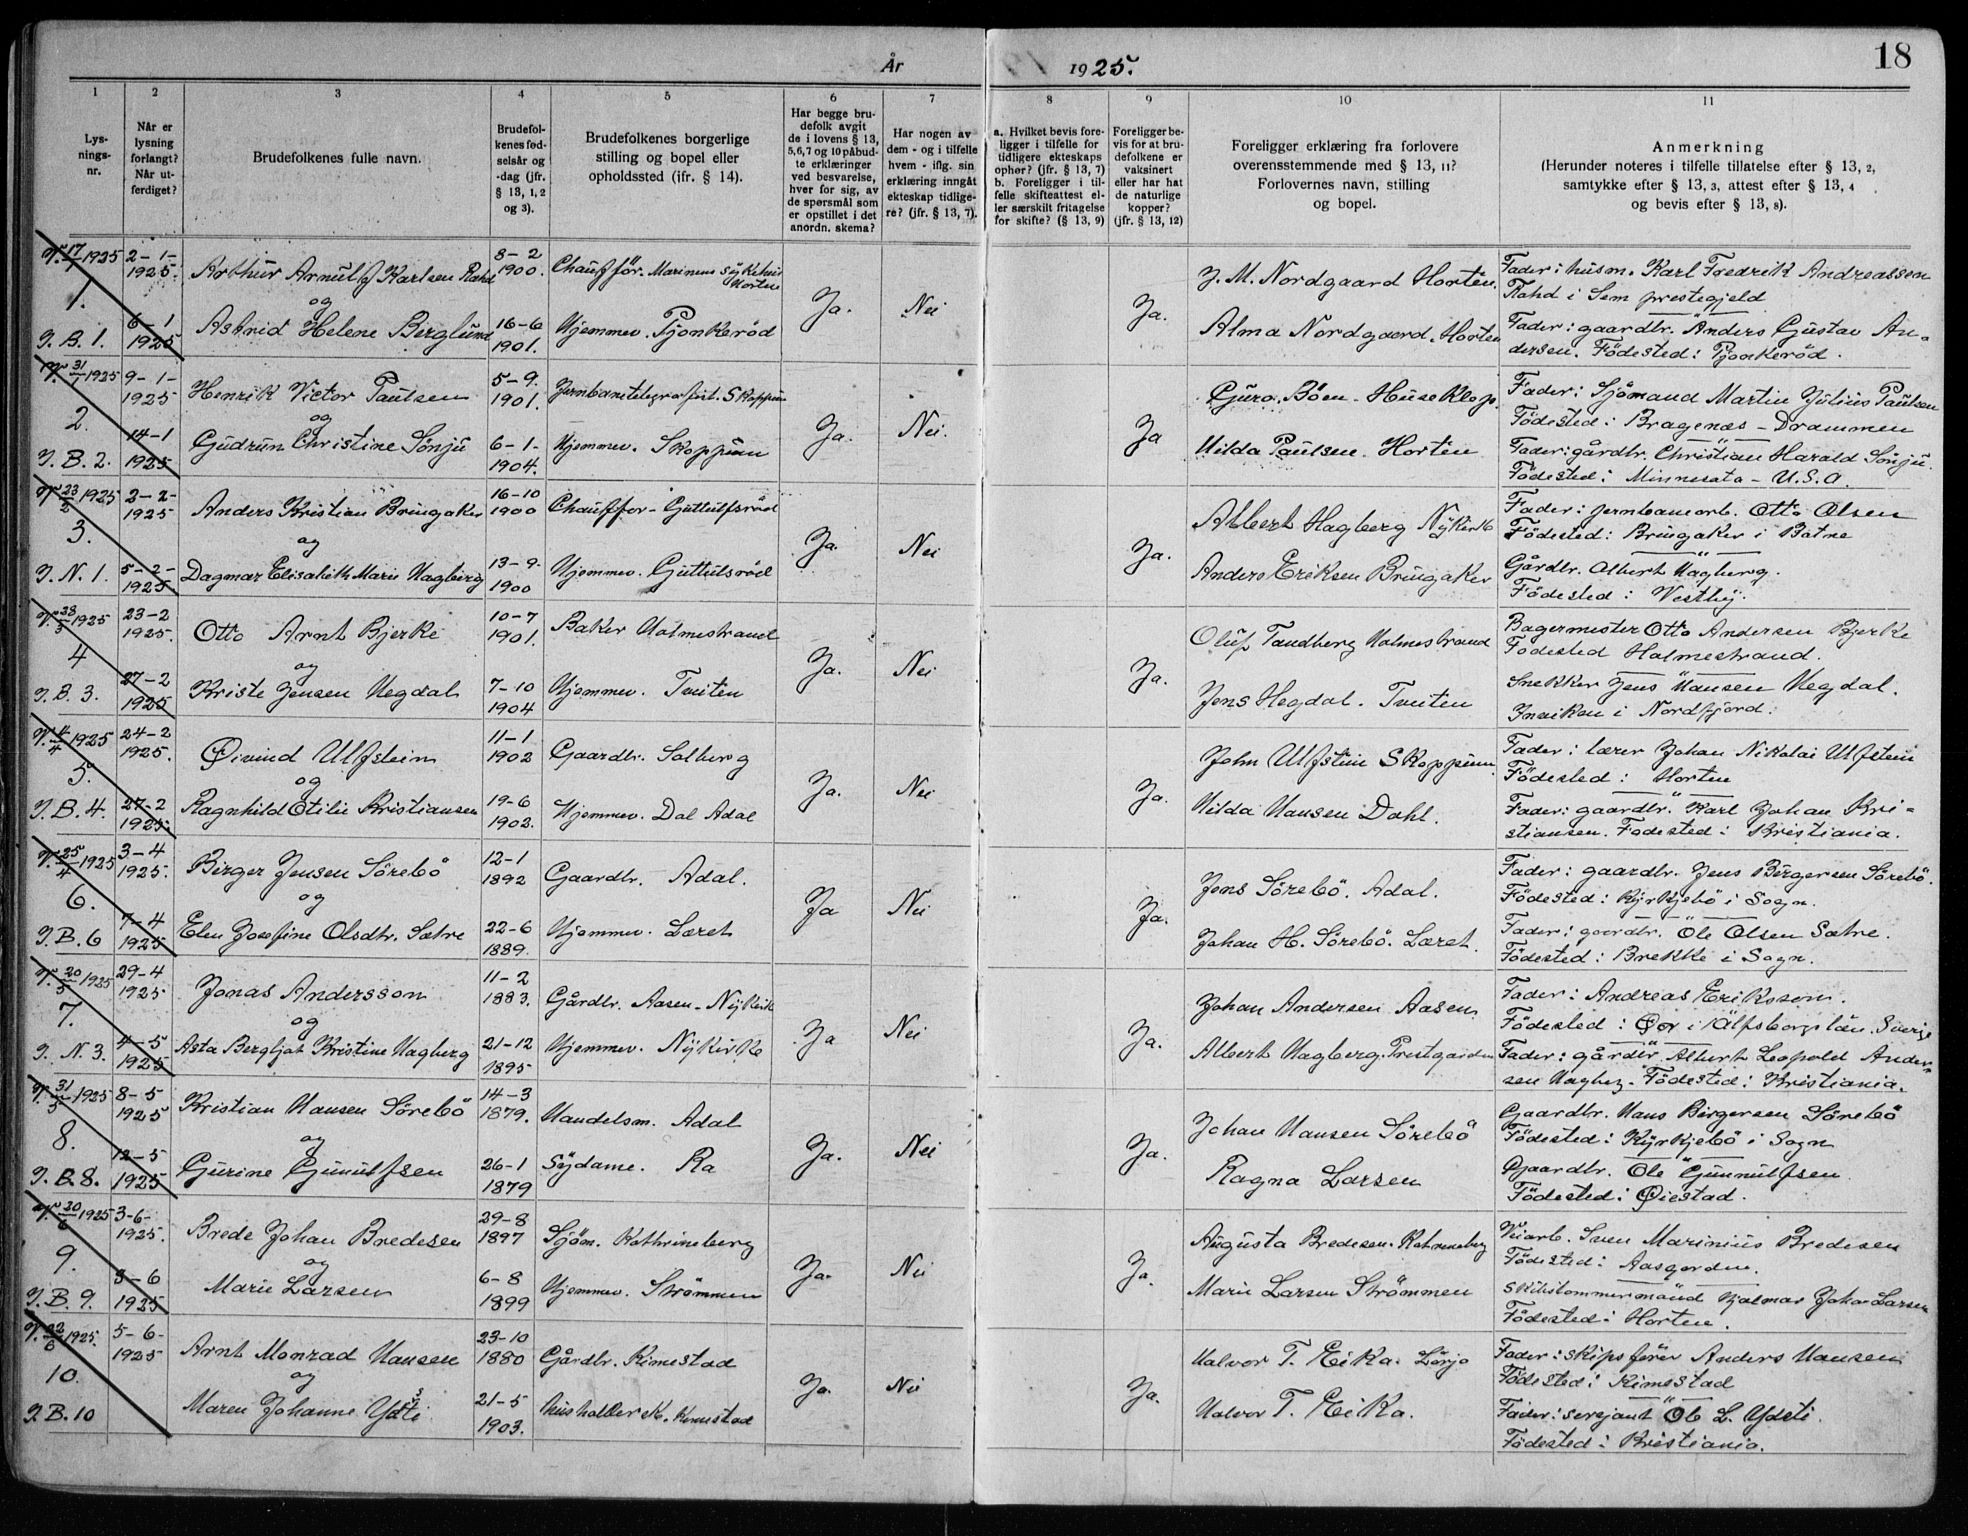 18
År 1925.
1 2 3 4 5 6 7 8 9 10 11
Lys-
nings-
nr.
Når er
lysning
forlangt?
Når ut-
ferdiget?
Brudefolkenes fulle navn.
Brudefol-
kenes fød-
selsår og
-dag (jfr.
§ 13, 1, 2
og 3).
Brudefolkenes borgerlige
stilling og bopel eller
opholdssted (ifr. § 14).
Har begge bru-
defolk avgit
de i lovens § 13,
5,6,7 og 10 påbud-
te erklæringer
ved besvarelse,
hver for sig, av
de spørsmål som
er opstillet i det
anordn. skema?
Har nogen av
dem - og i tilfelle
hvem - iflg. sin
erklæring inngåt
ekteskap tidlige-
re? (jfr. § 13, 7).
a. Hvilket bevis fore-
ligger i tilfelle for
tidligere ekteskaps
ophør? (jfr. § 13, 7)
b. Foreligger i til-
felle skifteattest el-
ler særskilt fritagelse
for skifte? (§ 13, 9)
Foreligger be-
vis for at bru-
defolkene er
vaksinert
eller har hat
de naturlige
kopper?
(jfr. § 13, 12)
Foreligger erklæring fra forlovere
overensstemmende med § 13, 11?
Forlovernes navn, stilling
og bopel.
Anmerkning
(Herunder noteres i tilfelle tillatelse efter § 13, 2,
samtykke efter § 13, 3, attest efter § 13, 4
og bevis efter § 13, 8).
V. 17/1 1925 2-1- 1925. Arthur Arnulf Karlsen Rahd 8-2 1900. Chaufför. Marinens Sykehus Horten J. M. Nordgaard Horten. Fader: husm. Karl Fredrik Andreassen
1. og Ja. Nei Ja. Rahd i Sem prestegjeld
J. B. 1. 6-1 1925 Astrid Helene Berglund 16-6 1901. Hjemmev. Pjonkeröd Alma Nordgaard. Horten Fader: gaardbr. Anders Gustav An-
dersen. Födested: Pjonkeröd.
V. 31/1 1925 9-1- 1925 Henrik Victor Paulsen 5-9. 1901. Jernbanetelegrafist. Skoppum Guro Böen - Huseklep. Fader: Sjömand Martin Julius Paulsen
2. og Ja. Nei. Ja Födested: Bragenæs - Drammen
J. B. 2. 14-1 1925 Gudrun Christine Sönju 6-1- 1904. Hjemmev. Skoppum Hilda Paulsen. Horten Fader: gårdbr. Christian Harald Sönju.
Födested: Minnesata - U.S.A.
V. 23/2 1925 2-2- 1925 Anders Kristian Bringaker 16-10 1900 Chauffor - Guttulfsröd Albert Hagberg Nykirk Fader: jernbanearb. Otto Olsen
3. og Ja. Nei Ja. Födested: Bringaker i Botne
J. N. 1. 5-2- 1925 Dagmar Elisabeth Marie Hagberg 13-9- 1900 Hjemmev. Guttulsröd Anders Eriksen Bringaker Gårdbr. Albert Hagberg.
Födested: Vestby.
V. 28/3 1925 23-2 1925. Otto Arnt Bjerke 10-7 1901. Baker Holmestrand Oluf Tandberg Holmestrand Bagermester Otto Andersen Bjerke
4 og Ja. Nei Ja. Födested Holmestrand.
J. B. 3. 27-2 1925 Kriste Jensen Hegdal 7-10 1904 Hjemmev. Tveiten Jens Hegdal. Tveiten Snekker Jens Hansen Hegdal.
Inviken i Nordfjord.
V. 4/4 1925 24-2 1925. Øivind Ulfstein 11-1 1902 Gaardbr. Solberg John Ulfstein Skoppum. Fader: lærer Johan Nikolai Ulfstein
5. og Ja. Nei Ja. Födested: Horten
J. B. 4. 27-2 1925. Ragnhild Otilie Kristiansen 19-6 1902. Hjemmev. Dal Adal Hilda Hansen Dahl. Fader: gaardbr. Karl Johan Kri-
stiansen. Fødested: Kristiania.
V. 25/4 1925 3-4 1925. Birger Jensen Sörebö 12-1 1892 Gaardbr. Adal. Jens Sörebö. Adal. Fader: gaardbr. Jens Birgersen Sörebö.
6. og Ja Nei Ja. Födested: Kyrkjebö i Sogn.
J. B. 6 7-4 1925 Elen Josefine Olsdtr. Sætre 22-6 1889. Hjemmev. Læret Johan H. Sörebö. Læret. Fader: gaardbr. Ole Olsen Sætre.
Födested: Brekke i Sogn.
V. 20/5 1925 29-4 1925 Jonas Andersson 11-2 1883. Gårdbr. Aasen - Nykirk Johan Andersen Aasen. Fader: Andreas Eriksson.
7. og Ja Nei Ja. Födested: Ør i Älfsborgslän. Sverige
J. N. 3. 4-5 1925 Asta Bergljot Kristine Hagberg 21-12 1895 Hjemmev. Nykirke Albert Hagberg. Prestgarden Fader: gårdbr. Albert Leopold Ander-
sen Hagberg. Födested: Kristiania.
V. 31/5 1925 8-5 1925 Kristian Hansen Sörebö 14-3 1879. Handelsm. Adal Johan Hansen Sörebö Gaardbr. Hans Birgersen Sörebö
8. og Ja. Nei Ja. Födested: Kyrkjebö i Sogn
J. B. 8. 12-5 1925 Gurine Gunulfsen 26-1 1879 Sydame. Ra Ragna Larsen Gaardbr. Ole Gunnulfsen
Födested: Øiestad.
V. 20/6 1925 3-6- 1925. Brede Johan Bredesen 29-8 1897 Sjöm. Kathrineberg Augusta Bredesen. Katrineberg Veiarb. Sven Marinius Bredesen
9. og Ja. Nei Ja. Födested: Aasgorden.
J. B. 9. 3-6 1925 Marie Larsen 6-8 1899 Hjemmev. Strömmen Marie Larsen Strömmen Skibstømmermand Hjalmar Johan Larsen
Födested: Horten.
V. 22/6 1925. 5-6- 1925 Arnt Monrad Hansen 23-10 1880 Gårdbr. Kimestad Halvor T. Eika. Fader: skipsfører Anders Hansen
10. og Ja. Nei Ja. Födested: Kimestad
J. B. 10 Maren Johanne Ydsti 21-5 1903. Husholderske. Kimestad Halvor T. Eika. Fader: sersjant Ole L. Ydsti.
Födested: Kristiania.